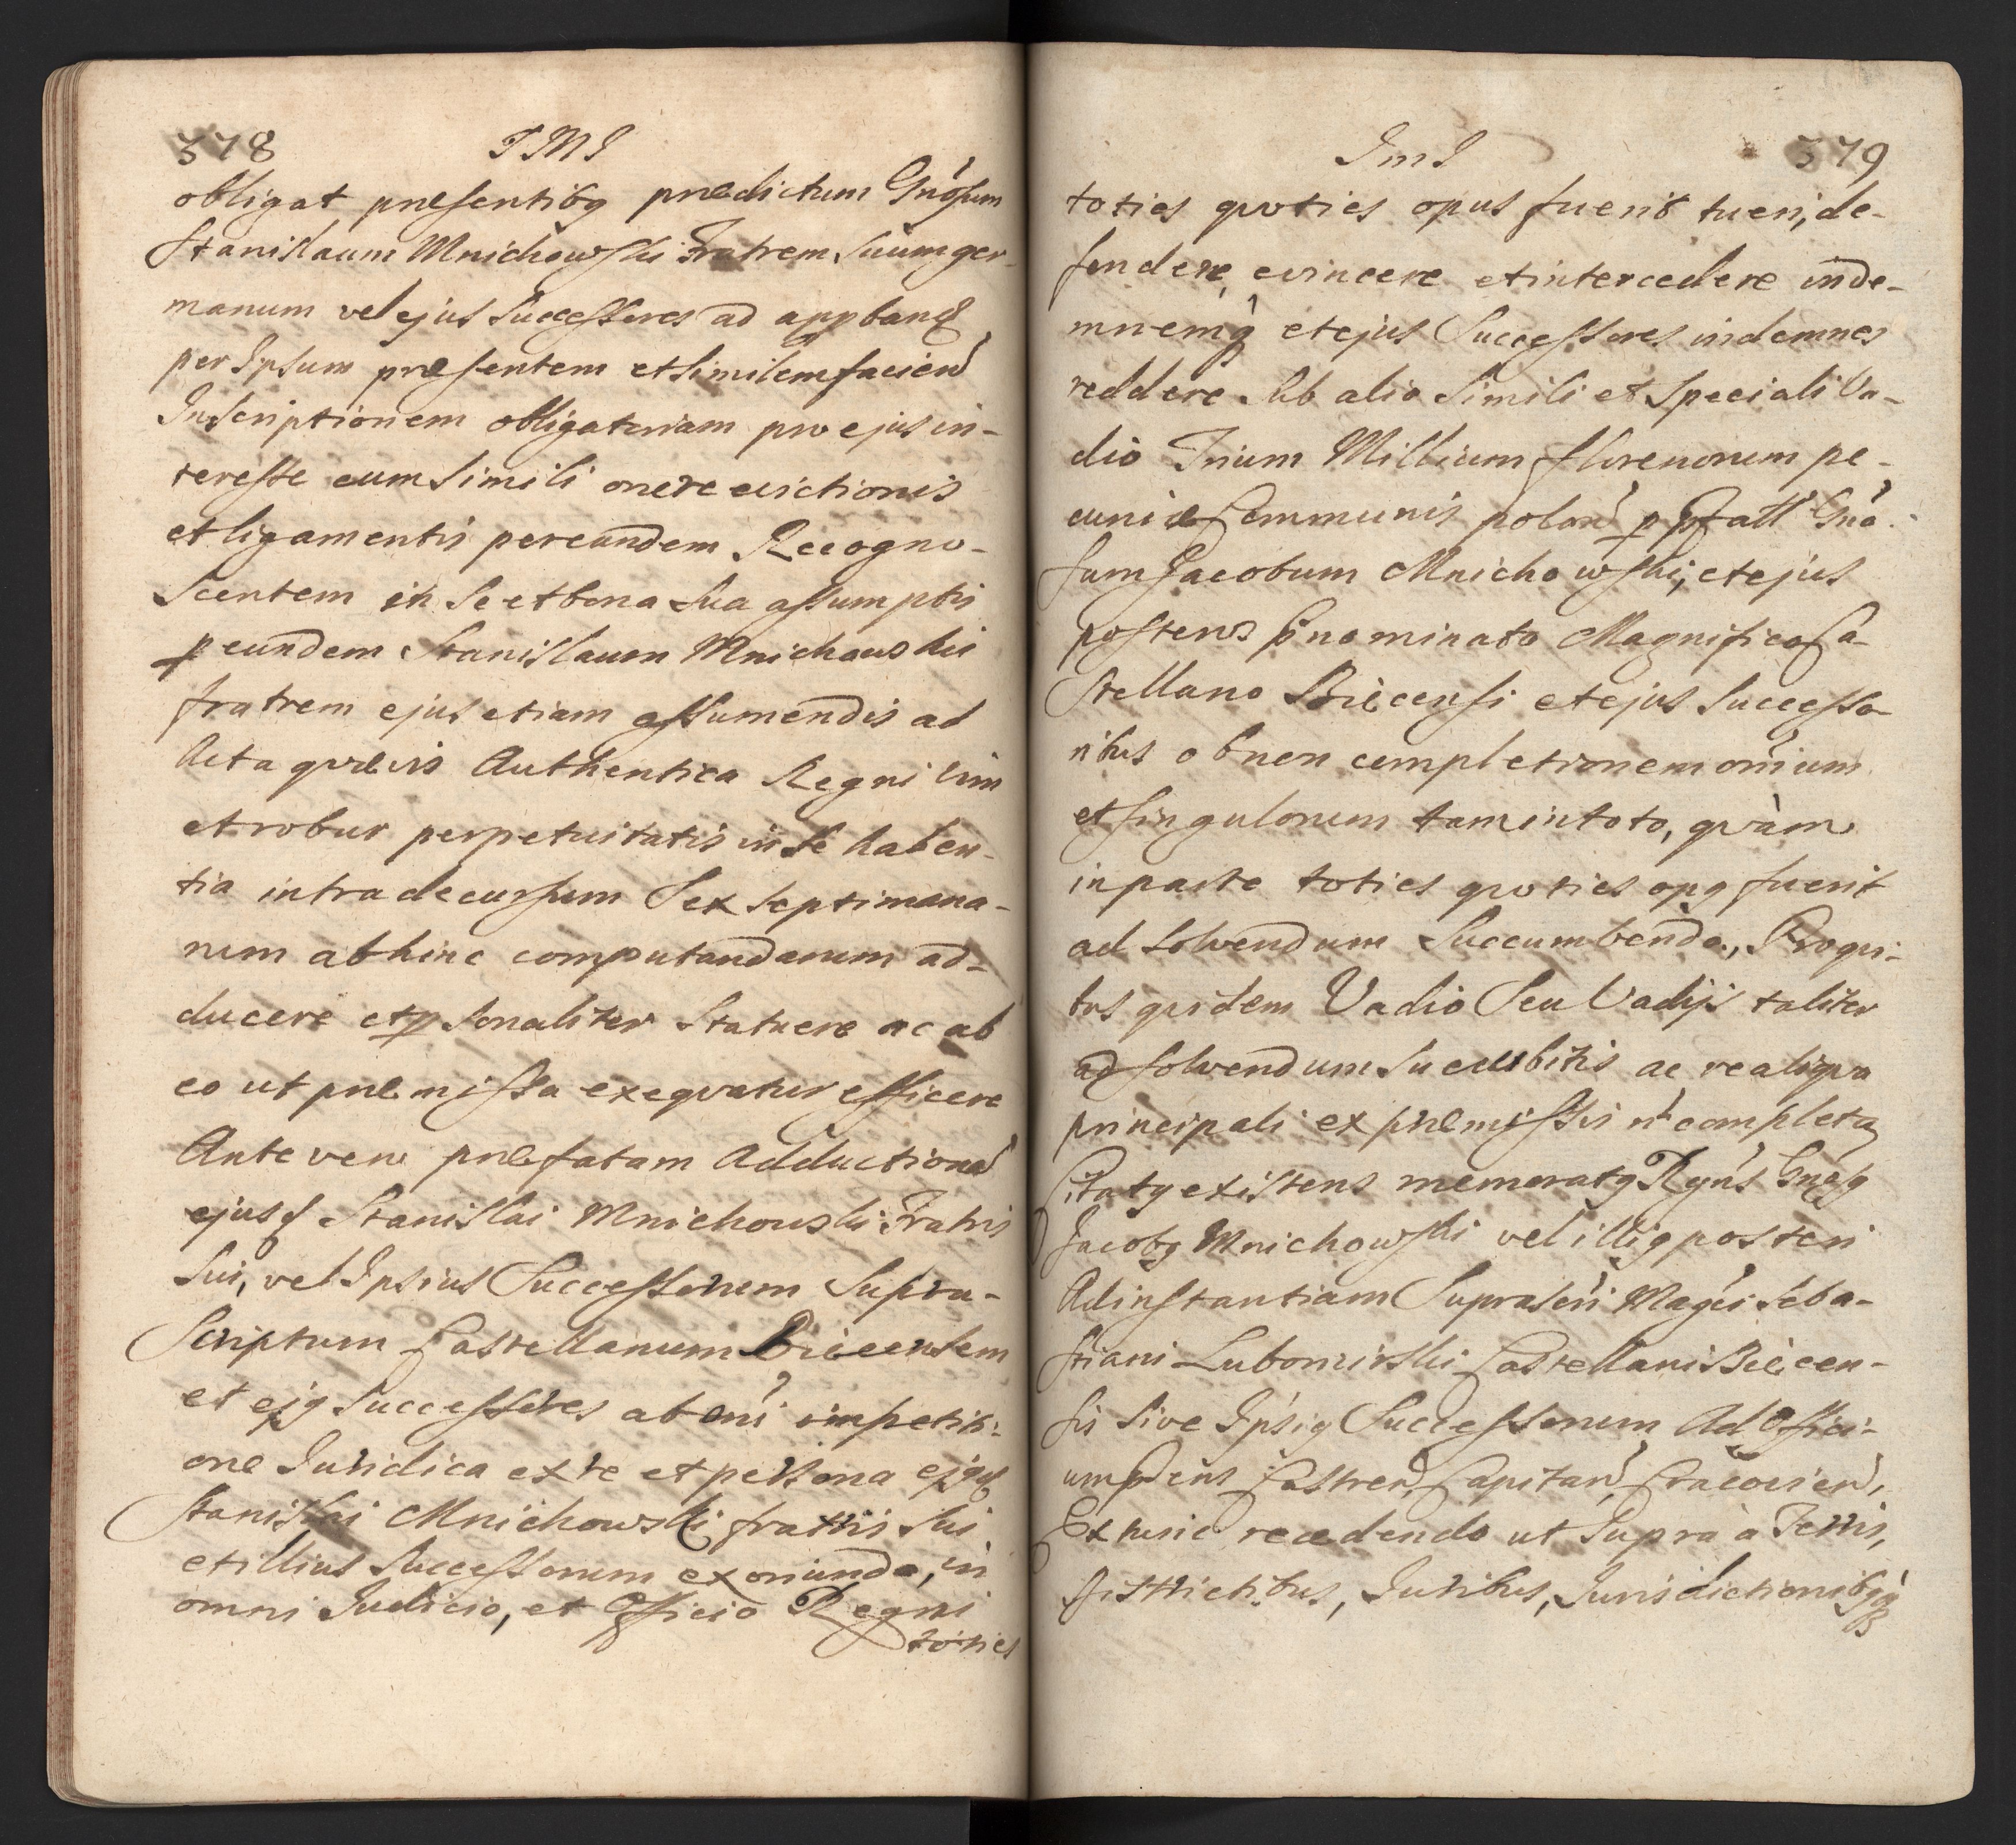 378 JMJ
obligat præsentibꝫ prædictum Gnosum
Stanislaum Mnichowski Fratrem Suum ger-
manum vel ejus Successores ad appband
per Ipsum præsentem et Similem faciend
Inscriptionem obligatoriam pro ejus in-
teresse cum Simili onere evictionis
et ligamentis per eundem Recogno-
Scentem in Se et bona Sua assumptis
p eundem Stanislaum Mnichowski
fratrem ejus etiam assumendis ad
Acta quævis Authentica Regni vim
et robur perpetuitatis in Se haben-
tia intra decursum Sex Septimana-
rum ab hinc computandarum ad-
ducere et psonaliter Statuere ac ab
eo ut præmissa exequatur efficere
Ante vero præfatam Adductionem
ejusd Stanislai Mnichowski Fratris
Sui, vel Ipsius Successorum Supra-
Scriptum Castellanum Biecensem
et ejꝫ Successores ab omi impetiti-
one Juridica ex re et persona ejusd
Stanislai Mnichowski fratris Sui
et illius Successorum exoriunda, in
omni Judicio, et Officio Regni
toties
JmJ 379
toties quoties opus fuerit tueri, de-
fendere, evincere et intercedere inde-
mnemq et ejus Successores indemnes
reddere Sub alio Simili et Speciali Va-
dio Trium Millium florenorum pe-
cuniæ Communis polon p pfatt Gno-
sum Jacobum Mnichowski, et ejus
posteros pnominato Magnifico Ca-
Stellano Biecensi et ejus Successo-
ribus ob non completionem omium
et singulorum tam in toto, quàm
in parte toties quoties opꝫ fuerit
ad Solvendum Succumbendo, Proqui-
bus quidem Vadio Seu Vadijs taliter
ad Solvendum Succubitis ac re aliqua
principali ex præmissis n completa
Citatꝫ existens memoratꝫ Rgns Gnosꝫ
Jacobꝫ Mnichowski vel illiꝫ posteri
Ad instantiam Suprascri Magci Seba-
stiani Lubomirski Castellani Biecen-
sis Sive Ipsiꝫ Successorum Ad Offici-
um pens Castren, Capitan, Cracovien,
Ex tunc recedendo ut Supra à Terris,
districtibus, Juribus, Jurisdictionibꝫq